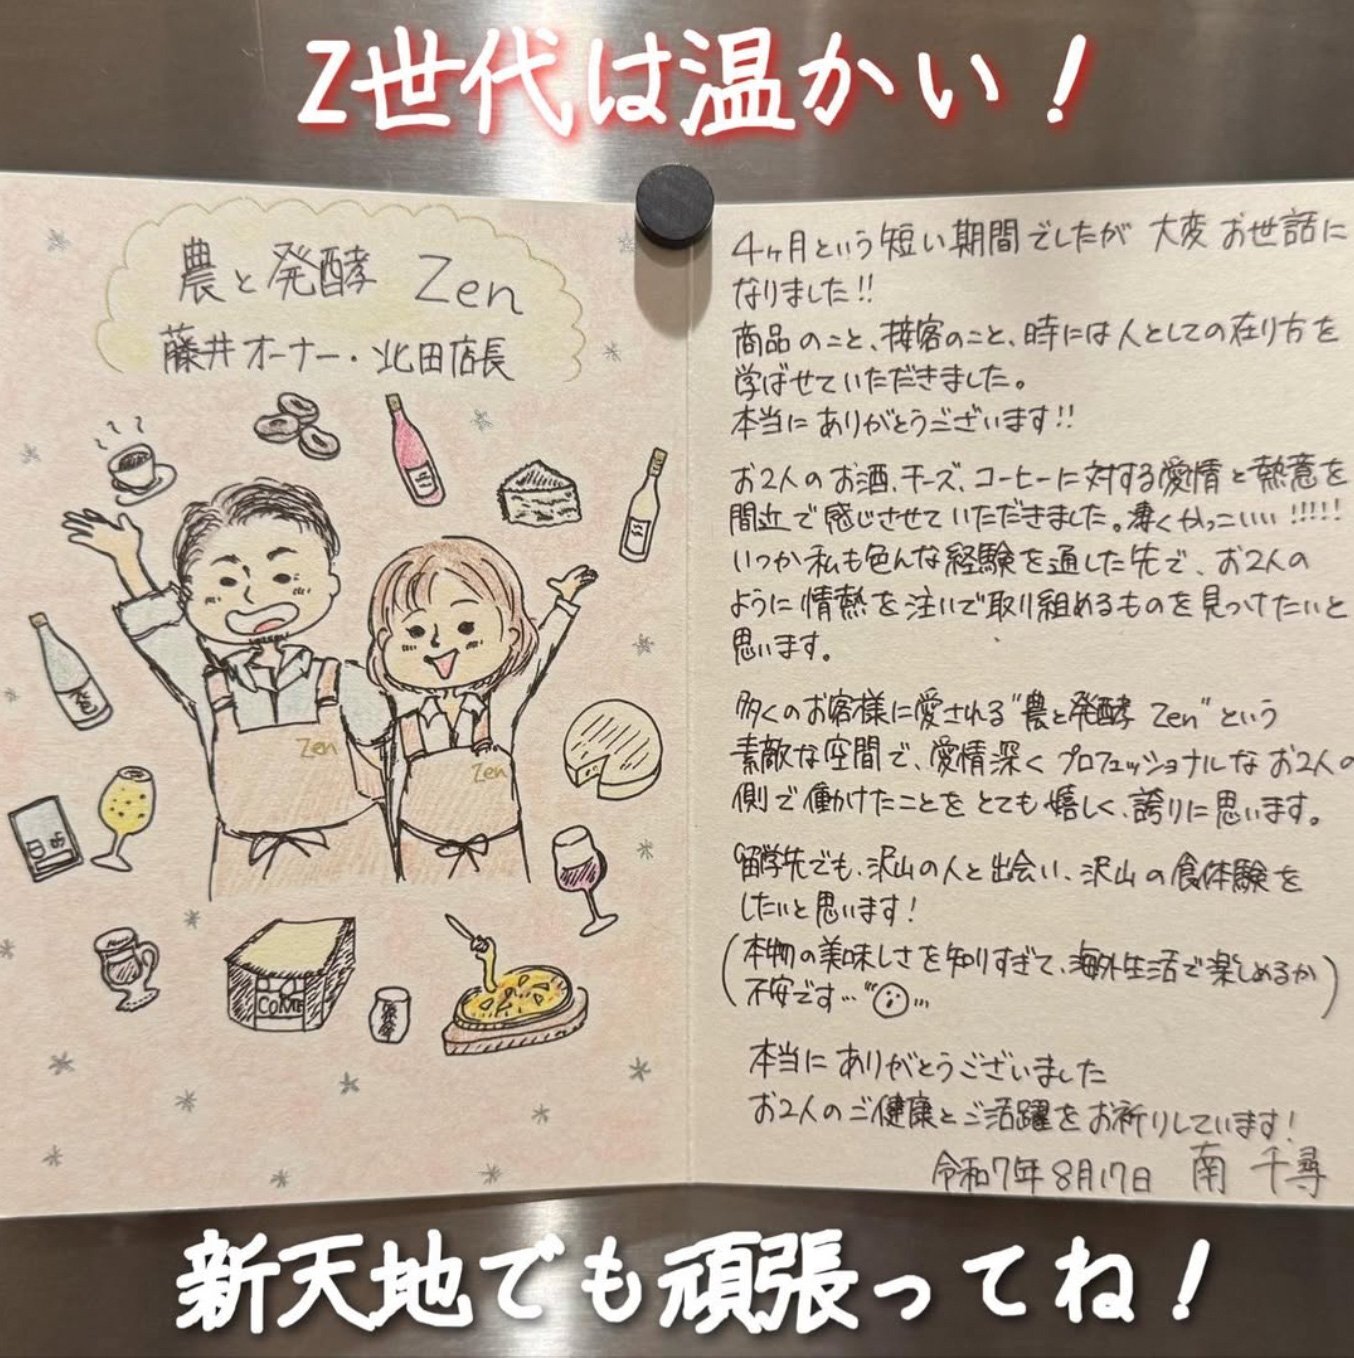 Z世代は温かい！
農と発酵 Zen
藤井オーナー・北田店長
Zen
Zen
4ヶ月という短い期間でしたが 大変お世話に
なりました!!
商品のこと、接客のこと、時には人としての在り方を
学ばせていただきました。
本当にありがとうございます!!
お2人のお酒、チーズ、コーヒーに対する愛情と熱意を
間近で感じさせていただきました。凄くかっこいい!!!!!
いつか私も色んな経験を通した先で、お2人の
ように情熱を注いで取り組めるものを見つけたいと
思います。
多くのお客様に愛される"農と発酵 Zen"という
素敵な空間で、愛情深くプロフェッショナルなお2人の
側で働けたことをとても嬉しく、誇りに思います。
留学先でも、沢山の人と出会い、沢山の食体験を
したいと思います!
(本物の美味しさを知りすぎて、海外生活で楽しめるか
不安です…)
本当にありがとうございました
お2人のご健康とご活躍をお祈りしています!
令和7年8月17日 南 千尋
新天地でも頑張ってね！